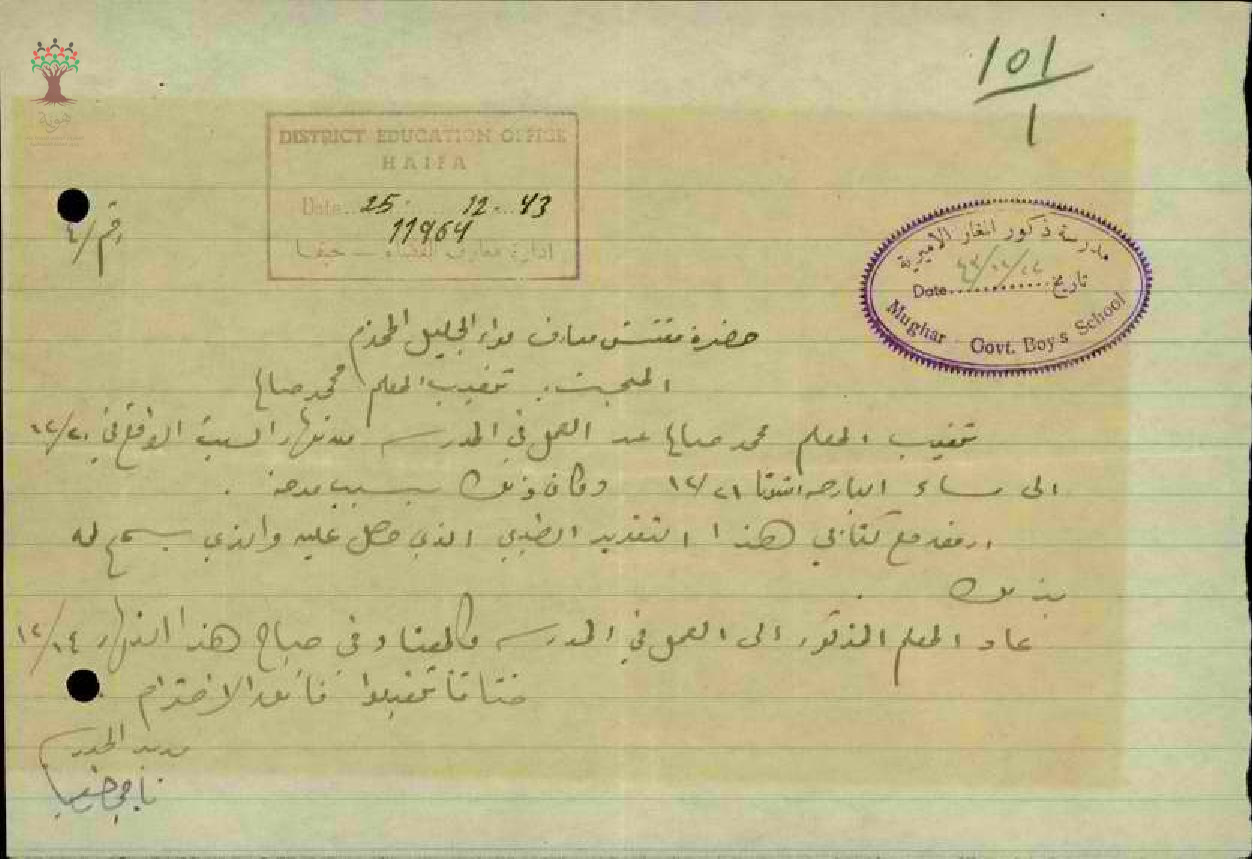 101
1
DISTRICT EDUCATION OFFICE
HAIFA
Date..25......12...43
11964
ادارة معارف القضاء – حيفا
رقم /٤
مدرسة ذكور المغار الاميرية
تاريخ............Date
Mughar Govt. Boys School
هوية
حضرة مفتش معارف لواء الجليل المحترم
المبحث: تغيب المعلم محمد صالح
تغيب المعلم محمد صالح عن العمل في المدرسة من نهار السبت الواقع في
الى مساء البارحة ١٢/٢١ وكان ذلك بسبب مرضه .
ارفق مع كتابي هذا التقرير الطبي الذي حصل عليه والذي يسمح له
بذلك .
عاد المعلم المذكور الى العمل في المدرسة كالمعتاد في صباح هذا النهار
ختاما تفضلوا فائق الاحترام
مدير المدرسة
ناجي